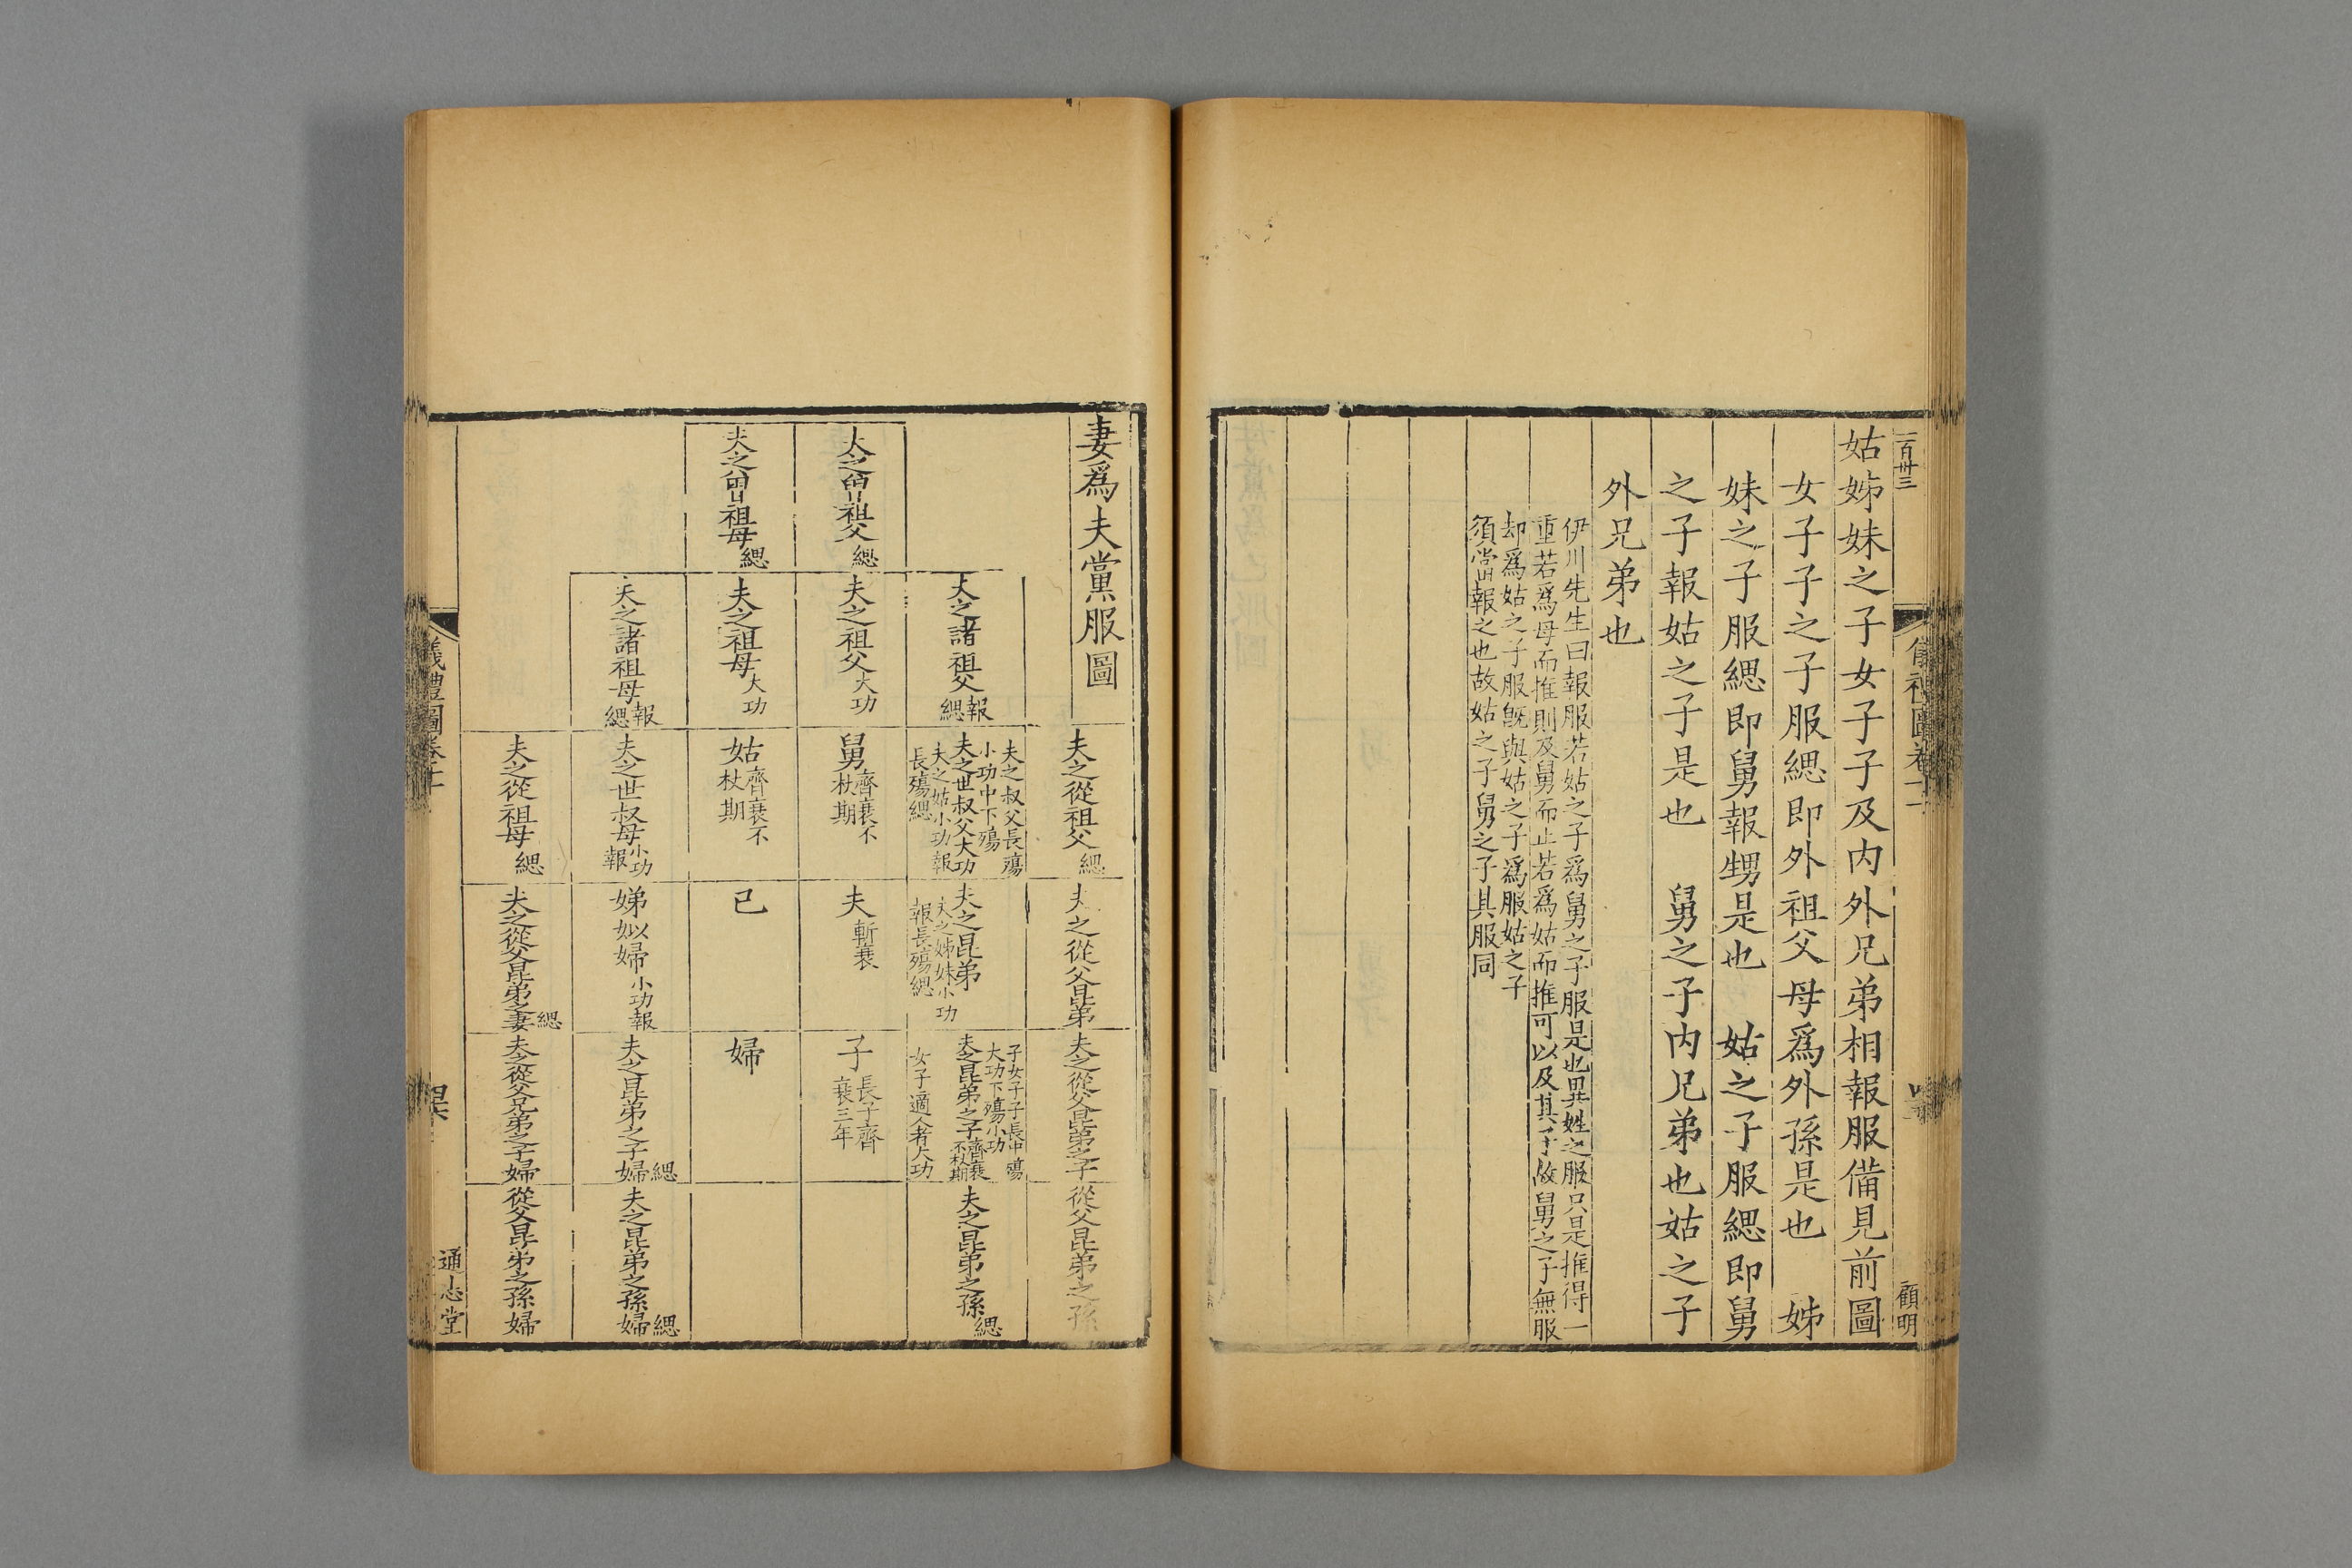 一百卅三
儀禮圖卷十一
顧明
姑姊妹之子女子子及内外兄弟相報服備見前圖
女子子之子服緦即外祖父母爲外孫是也　姊
妹之子服緦即舅報甥是也　姑之子服緦即舅
之子報姑之子是也　舅之子内兄弟也姑之子
外兄弟也
伊川先生曰報服若姑之子爲舅之子服是也異姓之服只是推得一
重若爲母而推則及舅而止若爲姑而推可以及其子故舅之子無服
却爲姑之子服既與姑之子爲服姑之子
須當報之也故姑之子舅之子其服同
妻爲夫黨服圖
夫之曾祖父緦
夫之曾祖母緦
夫之諸祖父報緦
夫之祖父大功
夫之祖母大功
夫之諸祖母報緦
夫之從祖父緦
夫之叔父長殤
小功中下殤
夫之世叔父大功
夫之姑小功報
長殤緦
舅齊衰不
杖期
姑齊衰不
杖期
夫之世叔母小功
報
夫之從祖母緦
夫之從父昆弟
夫之昆弟
夫之姊妹小功
報長殤緦
夫斬衰
己
娣姒婦小功報
夫之從父昆弟之妻緦
夫之從父昆弟之子
子女子子長中殤
大功下殤小功
夫之昆弟之子齊衰
不杖期
女子子適人者大功
子長子齊
衰三年
婦
夫之昆弟之子婦緦
夫之從父兄弟之子婦
從父昆弟之孫
夫之昆弟之孫緦
夫之昆弟之孫婦緦
從父昆弟之孫婦
儀禮圖卷十一
通志堂